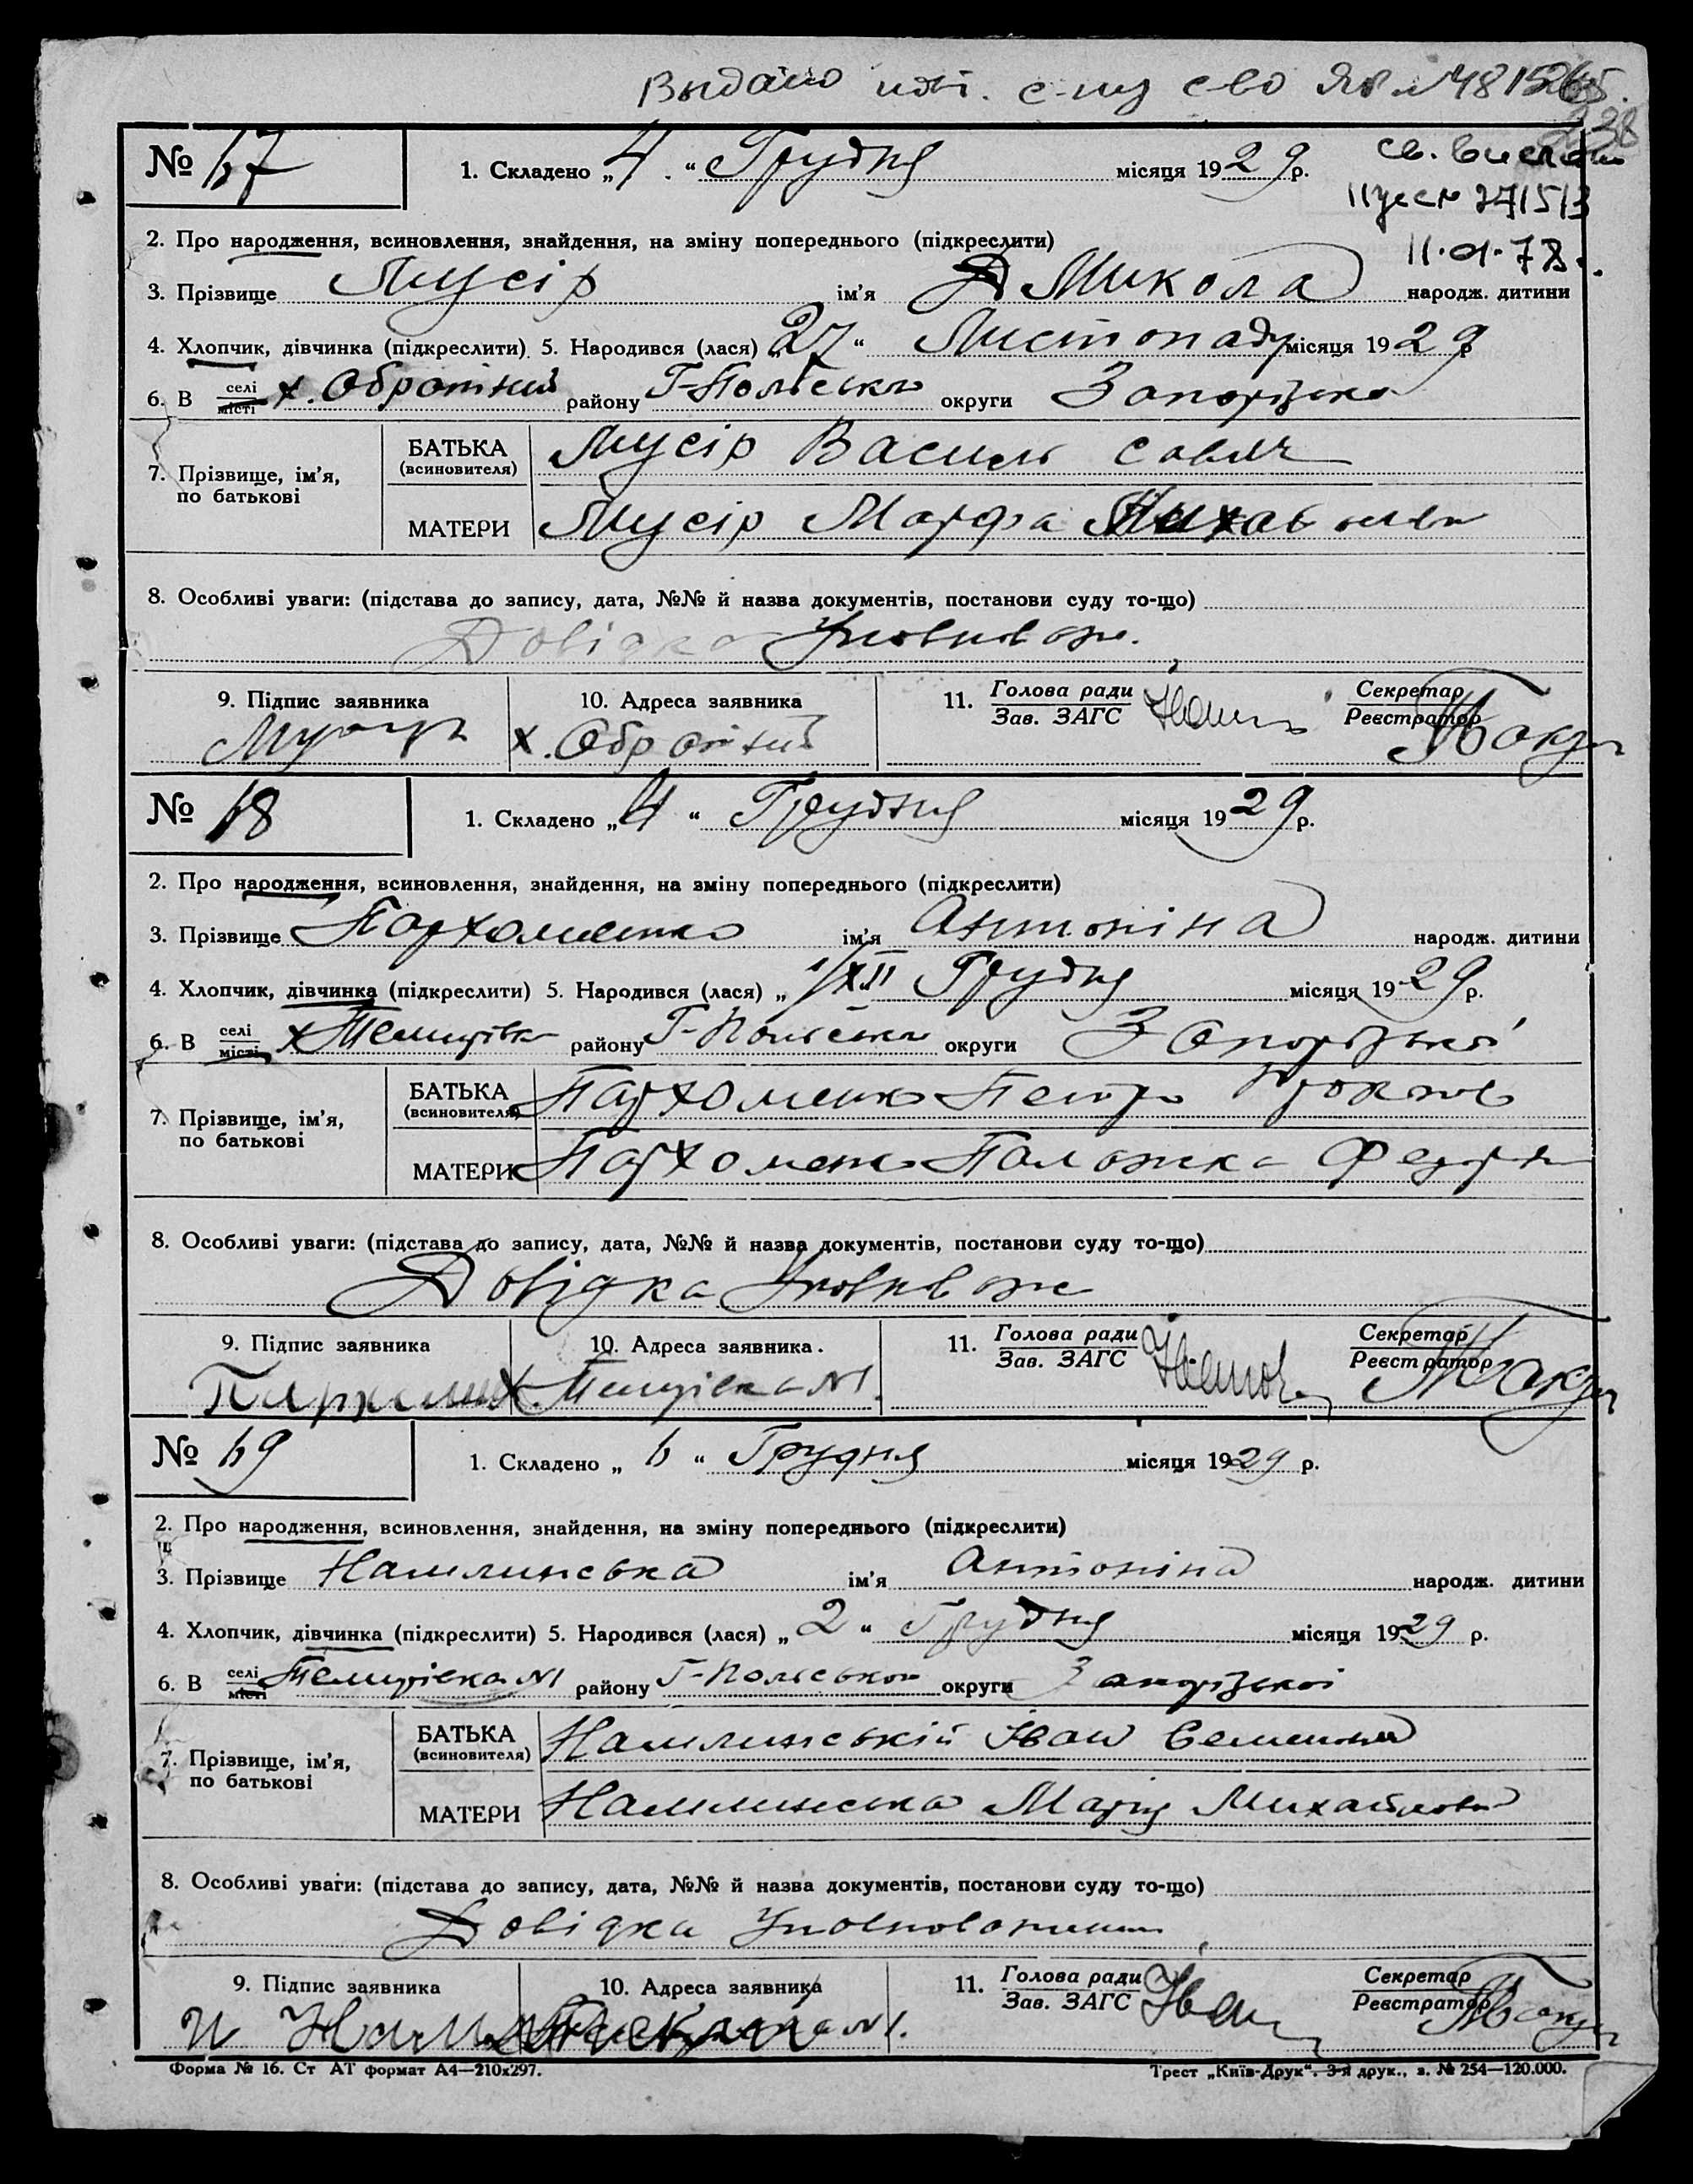 Выдано
238
№ 67 1. Складено „4“ Грудня місяця 1929 р.
II.01.78
2. Про народження, всиновлення, знайдення, на зміну попереднього (підкреслити)
3. Прізвище Мусір ім'я Микола народж. дитини
4. Хлопчик, дівчинка (підкреслити) 5. Народився (лася) „27“ Листопаду місяця 1929 р
6. В селі місті х. Обротний району Г-Польськ округи Запорізька
7. Прізвище, ім'я, по батькові
БАТЬКА (всиновителя) Мусір Василь Савич
МАТЕРИ Мусір Марфа
8. Особливі уваги: (підстава до запису, дата, №№ й назва документів, постанови суду то-що)
Довідка Уповноваж.
9. Підпис заявника 10. Адреса заявника 11. Голова ради Зав. ЗАГС Секретар Реєстратор
х. Обротний
№ 68 1. Складено „4“ Грудня місяця 1929 р.
2. Про народження, всиновлення, знайдення, на зміну попереднього (підкреслити)
3. Прізвище Пархоменко ім'я Антоніна народж. дитини
4. Хлопчик, дівчинка (підкреслити) 5. Народився (лася) „1/XII Грудня місяця 1929 р.
6. В селі місті району Г-Польськ округи Запорізької
7. Прізвище, ім'я, по батькові
БАТЬКА (всиновителя) Пархоменко Петро
МАТЕРИ Пархоменко Палажка Федор
8. Особливі уваги: (підстава до запису, дата, №№ й назва документів, постанови суду то-що)
Довідка Уповноваж
9. Підпис заявника 10. Адреса заявника. 11. Голова ради Зав. ЗАГС Секретар Реєстратор
№ 69 1. Складено „6“ Грудня місяця 1929 р.
2. Про народження, всиновлення, знайдення, на зміну попереднього (підкреслити)
3. Прізвище Намлинська ім'я Антоніна народж. дитини
4. Хлопчик, дівчинка (підкреслити) 5. Народився (лася) „2“ Грудня місяця 1929 р.
6. В селі місті району Г-Польськой округи Запорізької
7. Прізвище, ім'я, по батькові
БАТЬКА (всиновителя) Намлинській Іван Семенович
МАТЕРИ Намлинська Марія Михайловна
8. Особливі уваги: (підстава до запису, дата, №№ й назва документів, постанови суду то-що)
Довідка Уповноваженого
9. Підпис заявника 10. Адреса заявника 11. Голова ради Зав. ЗАГС Секретар Реєстратор
Форма № 16. Ст АТ формат А4—210x297. Трест „Київ-Друк“. 3-я друк., з. № 254—120.000.